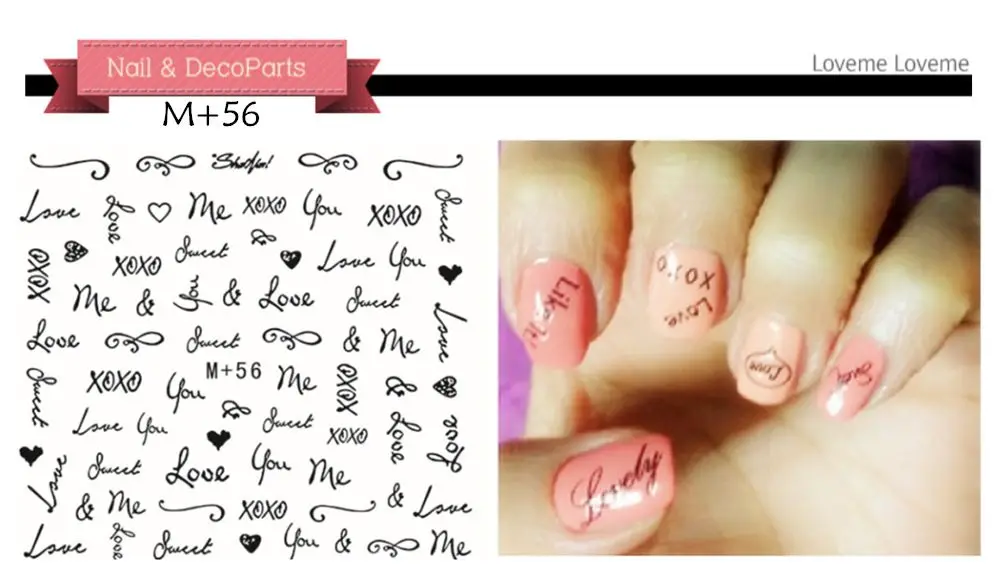 Nail & DecoParts
Loveme Loveme
M+56
Love Love Me XOXO You XOXO Sweet
XOXO XOXO Sweet & Love You
Me & You & Love Sweet
Love Sweet & Me Love
Sweet XOXO You M+56 Me XOXO & Love Your
Love You & Sweet XOXO
Love Sweet Love You Me
& Me XOXO & Love
Love Love Sweet You & Me
Like It!
XOXO
Love
Love
Lovely